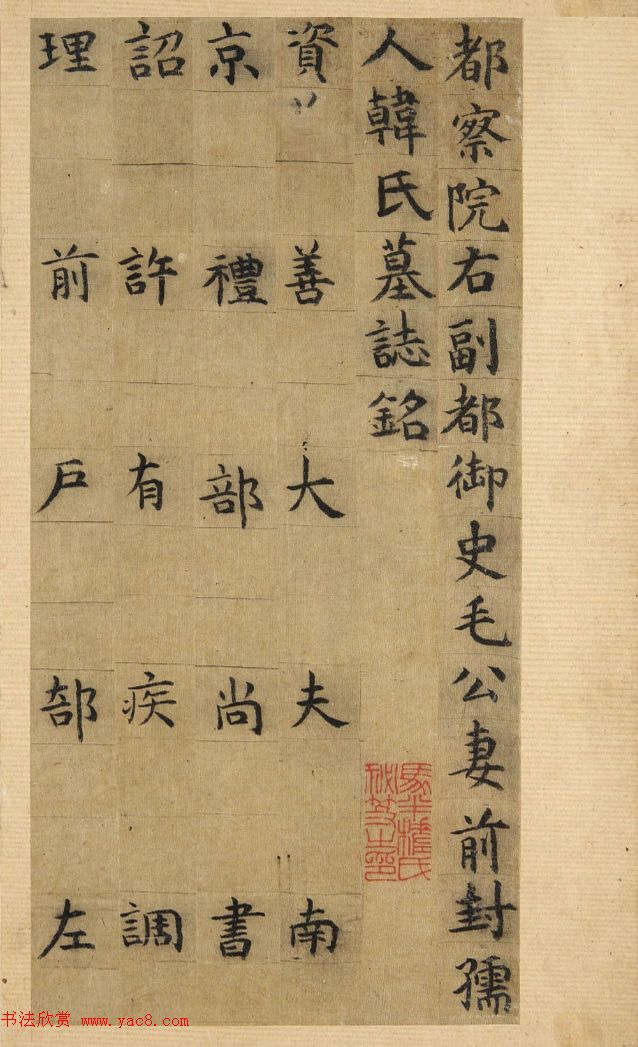 都察院右副都御史毛公妻前封孺
人韓氏墓誌銘
資善大夫南
京禮部尚書
詔許有疾調
理前戶部左
书法欣赏 www.yac8.com